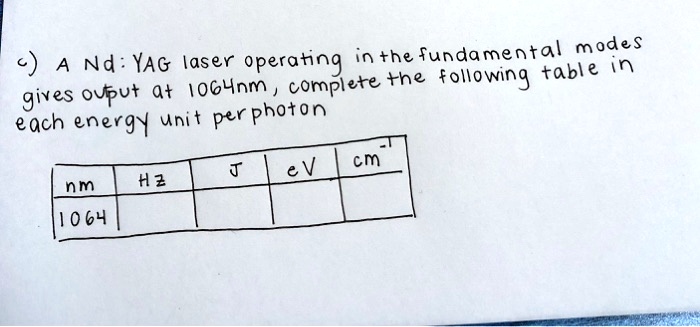 c) A Nd: YAG laser operating in the fundamental modes
gives ouput at 1064nm, complete the following table in
each energy unit per photon
nm Hz J eV cm⁻¹
1064